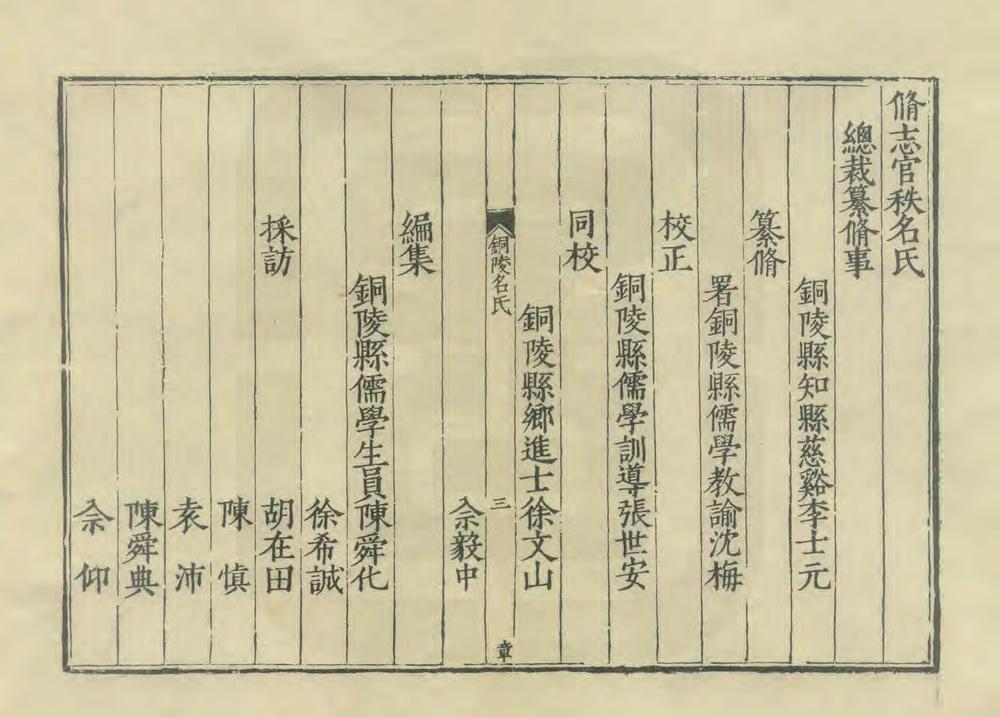 脩志官秩名氏
總裁纂脩事
銅陵縣知縣慈谿李士元
纂脩
署銅陵縣儒學教諭沈梅
校正
銅陵縣儒學訓導張世安
同校
銅陵縣鄉進士徐文山
銅陵名氏 三 章
佘毅中
編集
銅陵縣儒學生員陳舜化
徐希誠
採訪 胡在田
陳慎
袁沛
陳舜典
佘仰